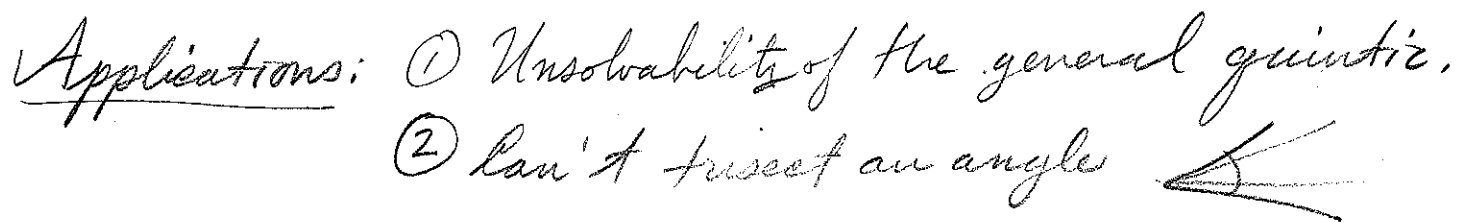 Applications: ① Unsolvability of the general quintic.
② Can't trisect an angle